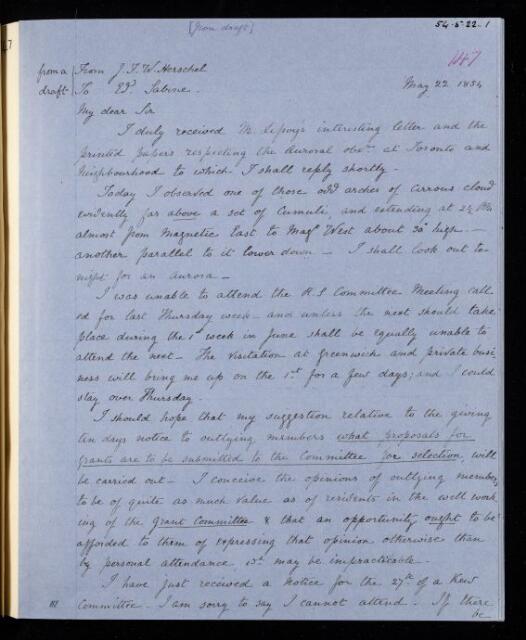 [from draft]
54-5-22.1
147
from a draft
From J. F. W. Herschel
To Ed. Sabine.
May 22 1854
My dear Sir
I duly received Mr Lefroy's interesting letter and the
printed papers respecting the Auroral obsns. at Toronto and
Neighbourhood to which I shall reply shortly.
Today I observed one of those odd arches of Cirrous cloud
evidently far above a set of Cumuli, and extending at 2½ P.M.
almost from Magnetic East to Magc West about 30° high. —
another parallel to it lower down — I shall look out to-
night for an aurora —
I was unable to attend the R.S. Committee Meeting call-
ed for last Thursday week — and unless the next should take
place during the 1st week in June shall be equally unable to
attend the next — The Visitation at Greenwich and private busi-
ness will bring me up on the 1st for a few days; and I could
stay over Thursday.
I should hope that my suggestion relative to the giving
ten days notice to outlying members what proposals for
grants are to be submitted to the Committee for selection will
be carried out — I conceive the opinions of outlying members
to be of quite as much value as of residents in the well work-
ing of the Grant Committee & that an opportunity ought to be
afforded to them of expressing that opinion otherwise than
by personal attendance, wh. may be impracticable.
I have just received a notice for the 27th of a Kew
Committee — I am sorry to say I cannot attend — If there
be